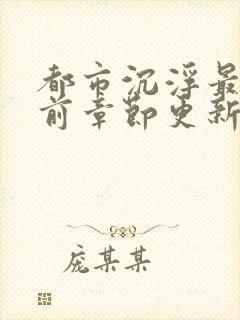 都市沉浮最
前章节更新
庞某某